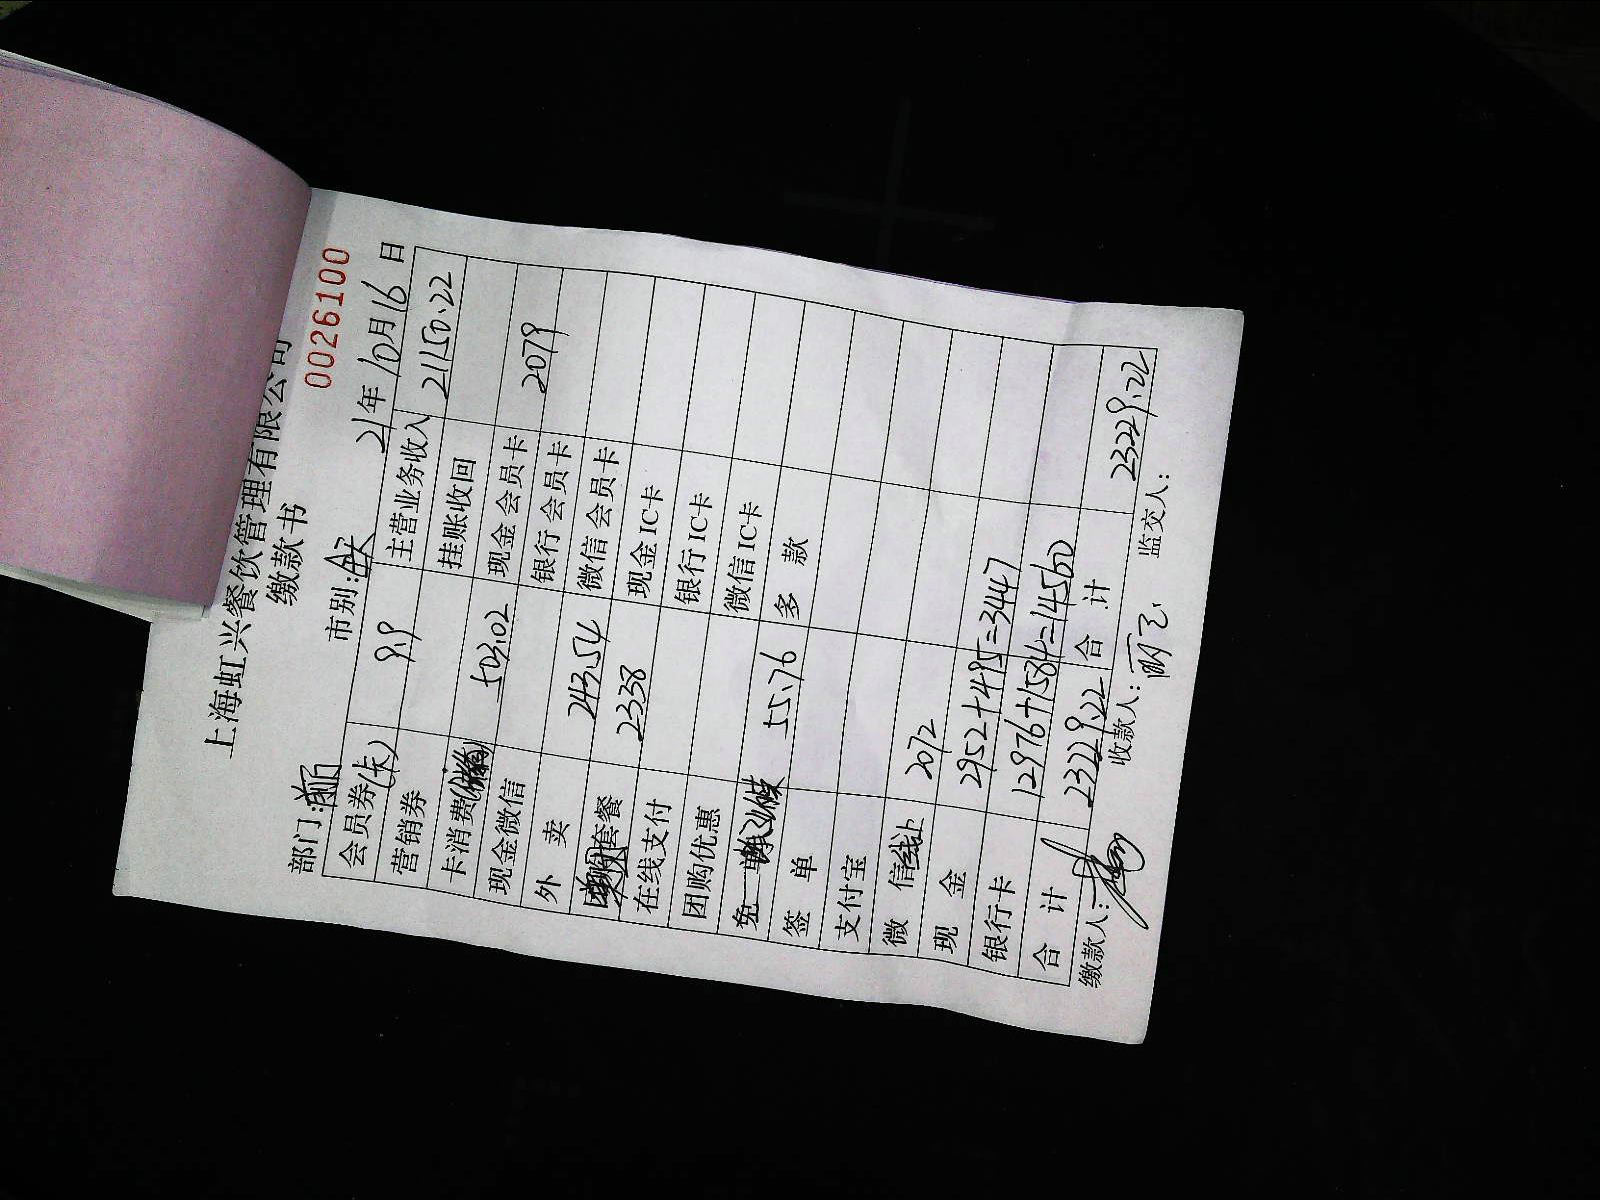 上海虹兴餐饮管理有限公司
缴款书
0026100
部门: 市别: 21年10月16日
会员券(卡) 9.9 主营业务收入 21150.22
营销券 挂账收回
卡消费 503.02 现金会员卡 2079
现金微信 银行会员卡
外卖 243.54 微信会员卡
套餐 2338 现金IC卡
在线支付 银行IC卡
团购优惠 微信IC卡
免 55.76 多款
签单
支付宝
微信线上 2072
现金 2952+495=3447
银行卡 12976+1584=14560
合计 23229.22 合计 23229.22
缴款人: 收款人: 监交人: